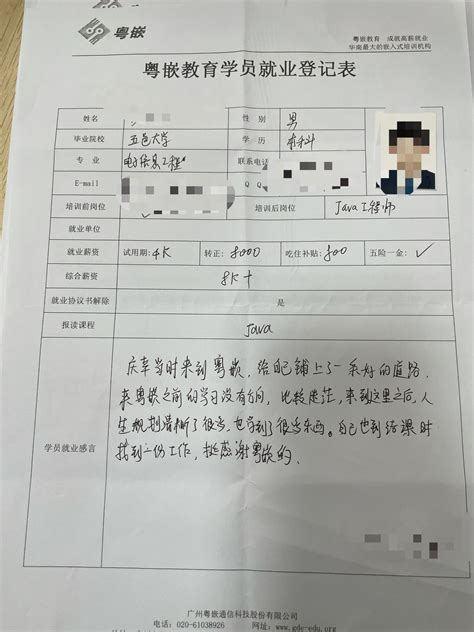 粤嵌
粤嵌教育 成就高薪就业
华南最大的嵌入式培训机构
粤嵌教育学员就业登记表
姓名 性别 男
毕业院校 五邑大学 学历 本科
专业 电子信息工程 联系电话
E-mail QQ
培训前岗位 培训后岗位 Java工程师
就业单位
就业薪资 试用期:4K 转正:8000 吃住补贴:800 五险一金:✓
综合薪资 8K+
就业协议书解除 是
报读课程 Java
学员就业感言
庆幸当时来到粤嵌,给自己铺上了一条好的道路.
来粤嵌之前的学习没有方向,比较迷茫,来到这里之后,人
生规划清晰了很多,也学到了很多东西。自己也到结课时
找到一份工作,挺感谢粤嵌的.
广州粤嵌通信科技股份有限公司
电话:020-61038926 网址:www.gde-edu.org